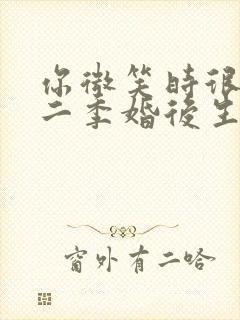 你微笑時很
二季婚後生
窗外有二哈